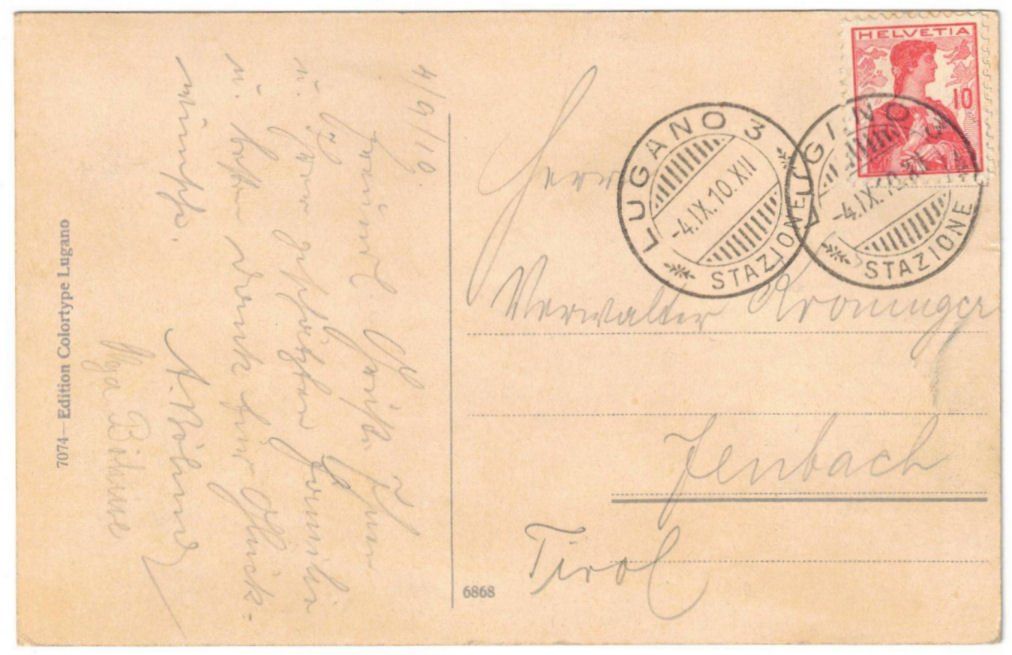 4/9/10.
Freundl. Grüße Ihnen
u. Ihrer geschätzten Familie
u. besten Dank für Glück-
wünsche.
A. Böhme
Olga Böhme
7074 — Edition Colortype Lugano
6868
HELVETIA
10
LUGANO 3
-4.IX.10.XII
STAZIONE
LUGANO 3
-4.IX.10.XII
STAZIONE
Herrn
Verwalter Kroninger
Jenbach
Tirol